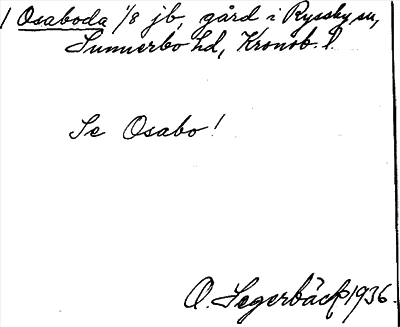 1 Osaboda 1/8 jb, gård i Ryssby sn,
Sunnerbo hd, Kronob. l.
Se Osabo!
O. Segerbäck 1936.